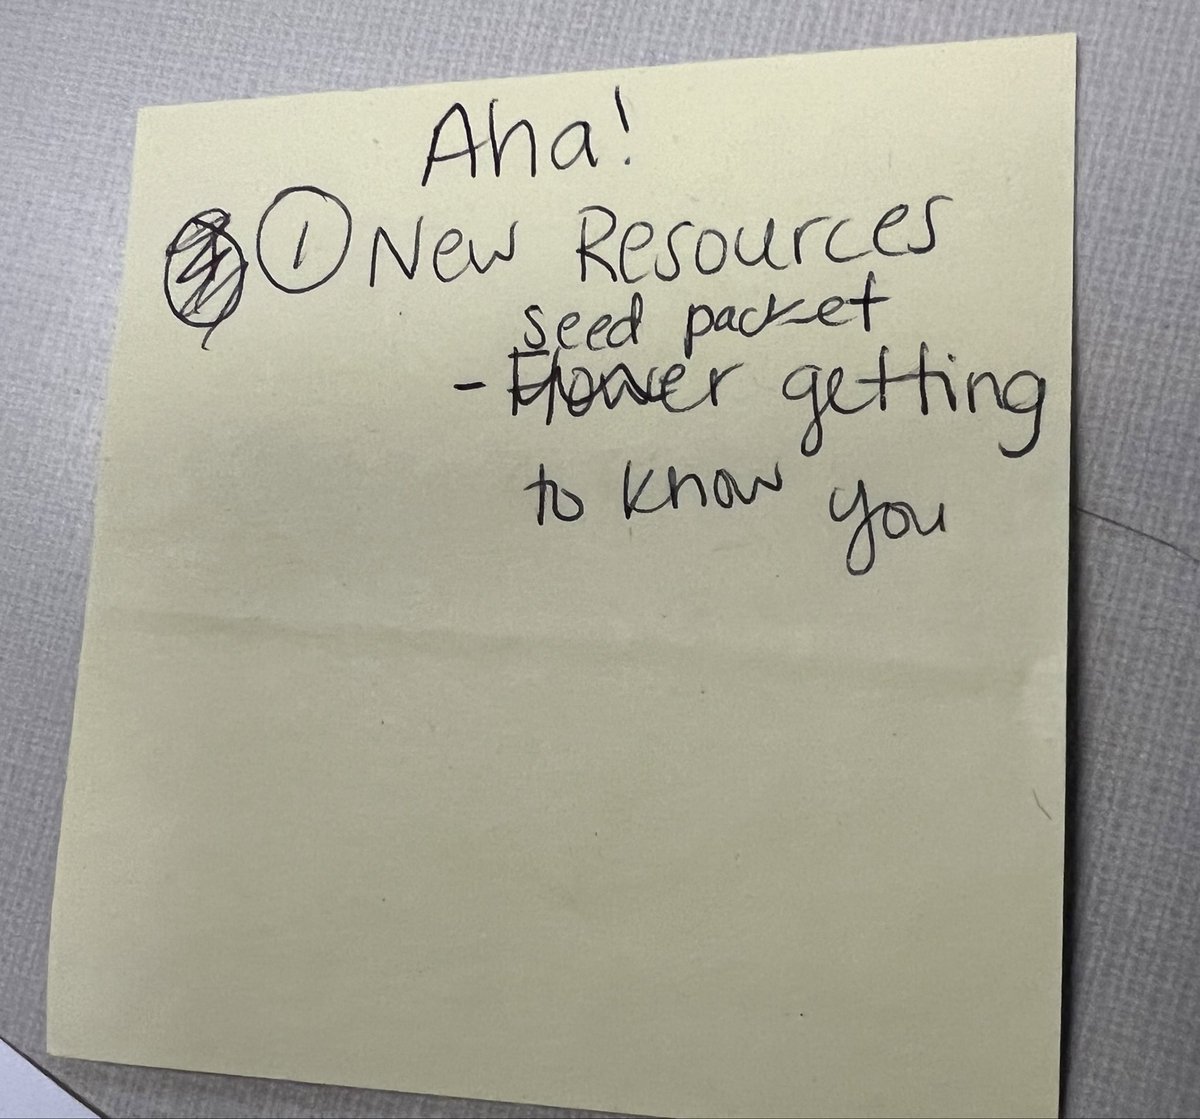 Aha!
① New Resources
seed packet
- Flower getting
to know you